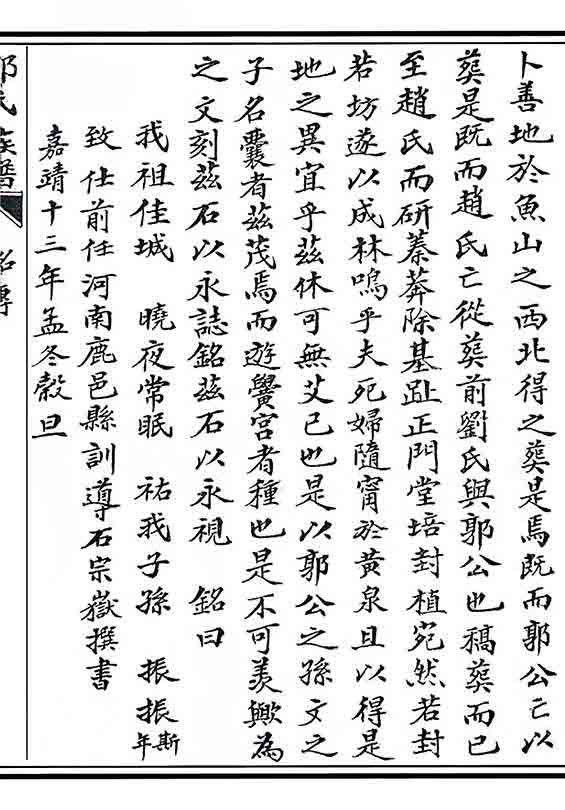 卜善地於魚山之西北得之葬是焉既而郭公亡以
葬是既而趙氏亡從葬前劉氏與郭公也稿葬而已
至趙氏而研蓁莽除基趾正門堂培封植宛然若封
若坊遂以成林嗚乎夫死婦隨甯於黃泉且以得是
地之異宜乎茲休可無艾已也是以郭公之孫文之
子名囊者茲茂焉而遊黌宮者種也是不可羡歟為
之文刻茲石以永誌銘茲石以永視 銘曰
我祖佳城 曉夜常眠 祐我子孫 振振斯年
致仕前任河南鹿邑縣訓導石宗嶽撰書
嘉靖十三年孟冬穀旦
氏族譜